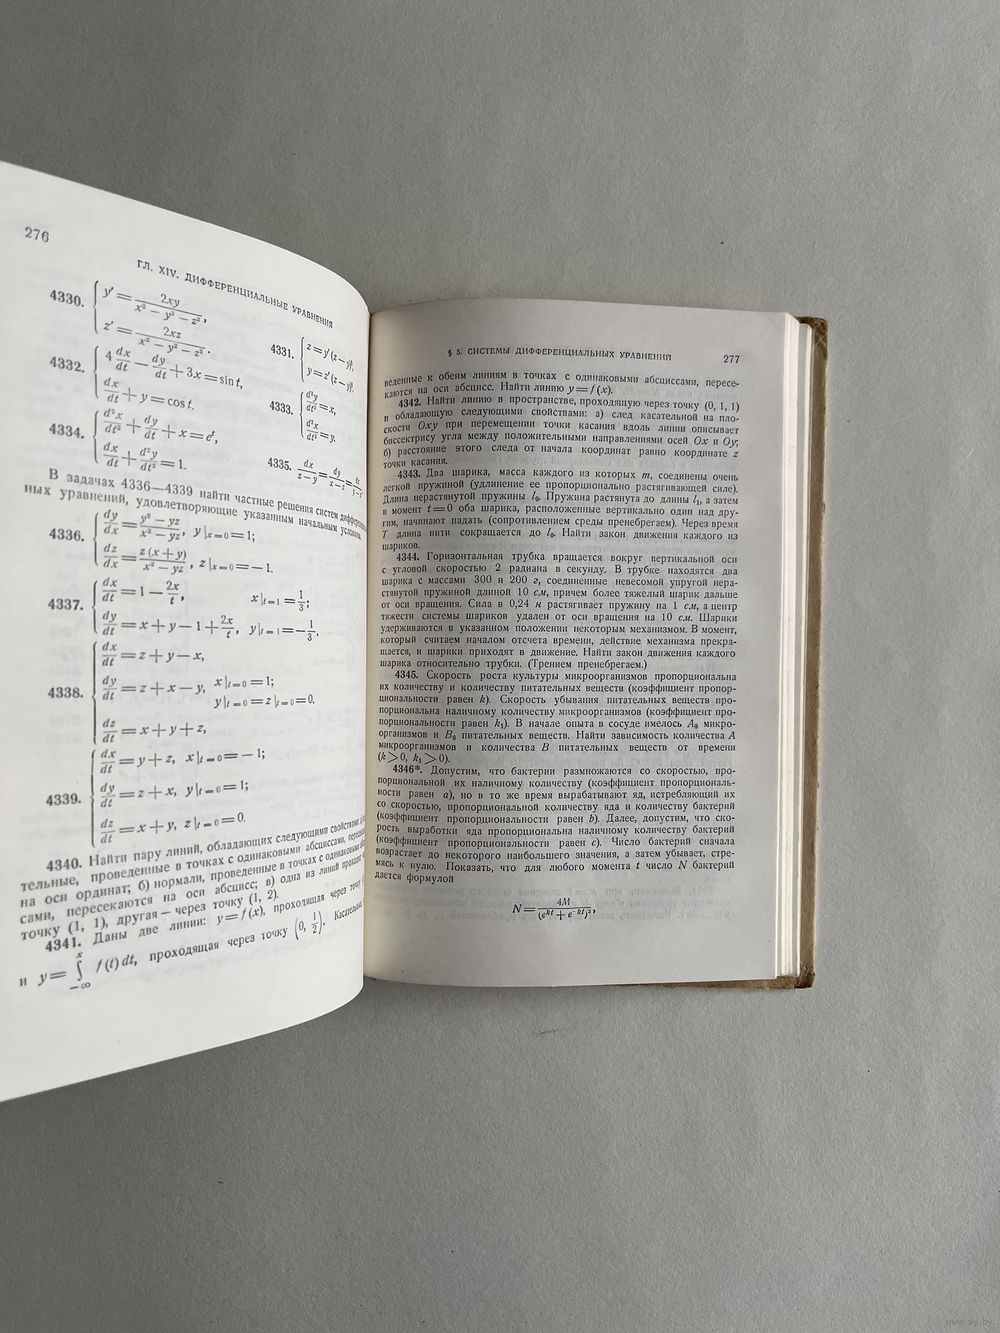 276
ГЛ. XIV. ДИФФЕРЕНЦИАЛЬНЫЕ УРАВНЕНИЯ
4330. { y′ = 2xy / (x² − y² − z²),
z′ = 2xz / (x² − y² − z²).
4331. { z = y′ (z − y)²,
y = z′ (z − y)².
4332. { 4 dx/dt − dy/dt + 3x = sin t,
dx/dt + y = cos t.
4333. { d²y/dt² = x,
d²x/dt² = y.
4334. { d²x/dt² + dy/dt + x = eᵗ,
dx/dt + d²y/dt² = 1.
4335. dx/(z − y) = dy/(x − z) = dz/(y − x)
В задачах 4336—4339 найти частные решения систем дифферен
ных уравнений, удовлетворяющие указанным начальным условиям.
4336. { dy/dx = (y² − yz)/(x² − yz), y|x=0 = 1;
dz/dx = z (x + y)/(x² − yz), z|x=0 = −1.
4337. { dx/dt = 1 − 2x/t, x|t=1 = 1/3;
dy/dt = x + y − 1 + 2x/t, y|t=1 = −1/3.
4338. { dx/dt = z + y − x,
dy/dt = z + x − y, x|t=0 = 1;
y|t=0 = z|t=0 = 0.
dz/dt = x + y + z,
4339. { dx/dt = y + z, x|t=0 = −1;
dy/dt = z + x, y|t=0 = 1;
dz/dt = x + y, z|t=0 = 0.
4340. Найти пару линий, обладающих следующими свойствами:
тельные, проведенные в точках с одинаковыми абсциссами,
на оси ординат; б) нормали, проведенные в точках с одинаковыми
сами, пересекаются на оси абсцисс; в) одна из линий проходит
точку (1, 1), другая — через точку (1, 2).
4341. Даны две линии: y = f (x), проходящая через точку
и y = ∫ₓ₋∞ f (t) dt, проходящая через точку (0, 1/2). Касательные,
§ 5. СИСТЕМЫ ДИФФЕРЕНЦИАЛЬНЫХ УРАВНЕНИЙ 277
веденные к обеим линиям в точках с одинаковыми абсциссами, пересе-
каются на оси абсцисс. Найти линию y = f (x).
4342. Найти линию в пространстве, проходящую через точку (0, 1, 1)
и обладающую следующими свойствами: а) след касательной на пло-
скости Oxy при перемещении точки касания вдоль линии описывает
биссектрису угла между положительными направлениями осей Ox и Oy;
б) расстояние этого следа от начала координат равно координате z
точки касания.
4343. Два шарика, масса каждого из которых m, соединены очень
легкой пружиной (удлинение ее пропорционально растягивающей силе).
Длина нерастянутой пружины l₀. Пружина растянута до длины l₁, а затем
в момент t = 0 оба шарика, расположенные вертикально один над дру-
гим, начинают падать (сопротивлением среды пренебрегаем). Через время
T длина нити сокращается до l₀. Найти закон движения каждого из
шариков.
4344. Горизонтальная трубка вращается вокруг вертикальной оси
с угловой скоростью 2 радиана в секунду. В трубке находятся два
шарика с массами 300 и 200 г, соединенные невесомой упругой нера-
стянутой пружиной длиной 10 см, причем более тяжелый шарик дальше
от оси вращения. Сила в 0,24 н растягивает пружину на 1 см, а центр
тяжести системы шариков удален от оси вращения на 10 см. Шарики
удерживаются в указанном положении некоторым механизмом. В момент,
который считаем началом отсчета времени, действие механизма прекра-
щается, и шарики приходят в движение. Найти закон движения каждого
шарика относительно трубки. (Трением пренебрегаем.)
4345. Скорость роста культуры микроорганизмов пропорциональна
их количеству и количеству питательных веществ (коэффициент пропор-
циональности равен k). Скорость убывания питательных веществ про-
порциональна наличному количеству микроорганизмов (коэффициент про-
порциональности равен k₁). В начале опыта в сосуде имелось A₀ микро-
организмов и B₀ питательных веществ. Найти зависимость количества A
микроорганизмов и количества B питательных веществ от времени
(k > 0, k₁ > 0).
4346*. Допустим, что бактерии размножаются со скоростью, про-
порциональной их наличному количеству (коэффициент пропорциональ-
ности равен a), но в то же время вырабатывают яд, истребляющий их
со скоростью, пропорциональной количеству яда и количеству бактерий
(коэффициент пропорциональности равен b). Далее, допустим, что ско-
рость выработки яда пропорциональна наличному количеству бактерий
(коэффициент пропорциональности равен c). Число бактерий сначала
возрастает до некоторого наибольшего значения, а затем убывает, стре-
мясь к нулю. Показать, что для любого момента t число N бактерий
дается формулой
N = 4M / (eᵏᵗ + e⁻ᵏᵗ)²,
www.ay.by